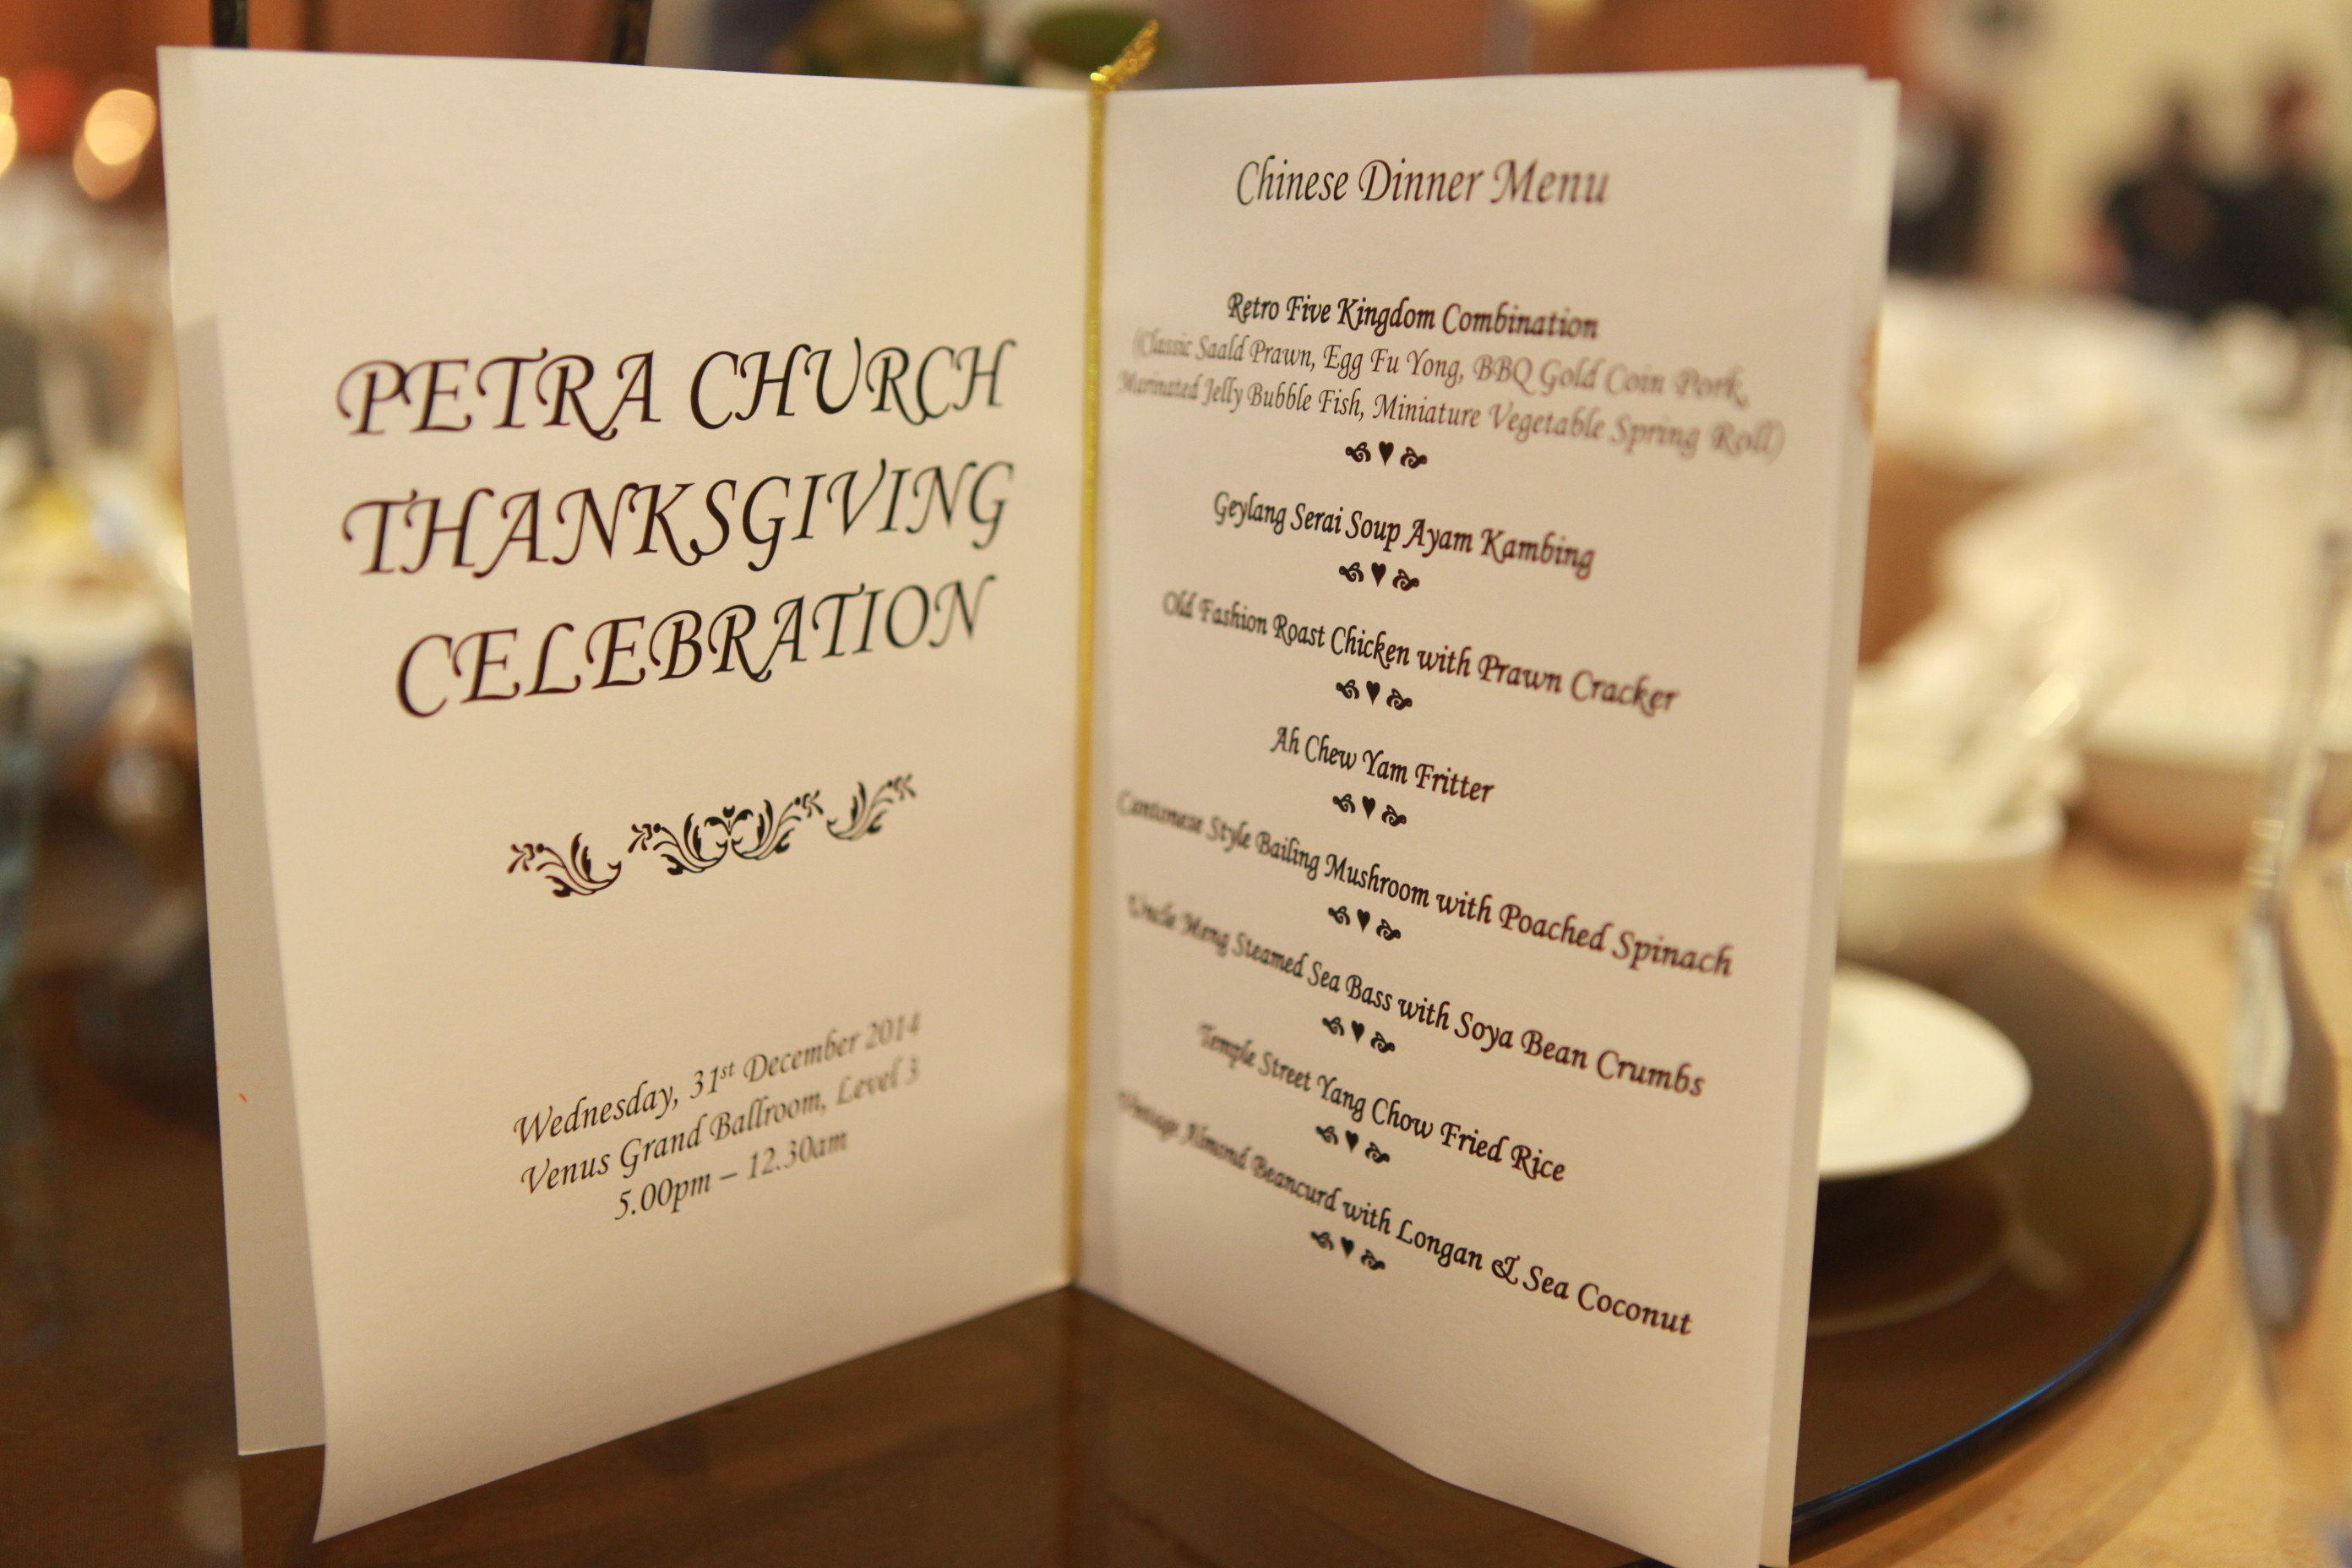 PETRA CHURCH
THANKSGIVING
CELEBRATION
Wednesday, 31st December 2014
Venus Grand Ballroom, Level 3
5.00pm – 12.30am
Chinese Dinner Menu
Retro Five Kingdom Combination
(Classic Saald Prawn, Egg Fu Yong, BBQ Gold Coin Pork,
Marinated Jelly Bubble Fish, Miniature Vegetable Spring Roll)
Geylang Serai Soup Ayam Kambing
Old Fashion Roast Chicken with Prawn Cracker
Ah Chew Yam Fritter
Cantonese Style Bailing Mushroom with Poached Spinach
Uncle Meng Steamed Sea Bass with Soya Bean Crumbs
Temple Street Yang Chow Fried Rice
Vintage Almond Beancurd with Longan & Sea Coconut